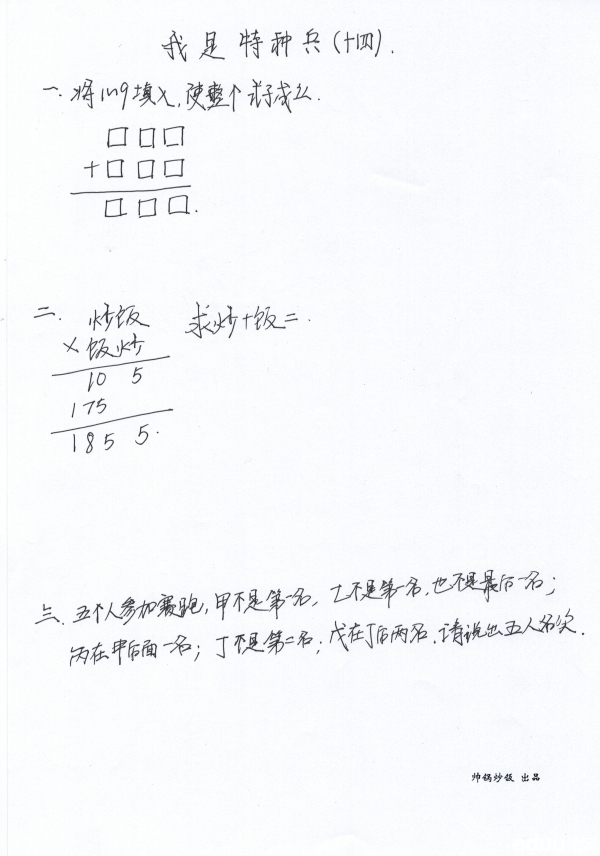 我是特种兵(十四).
一、将1~9填入,使整个式子成立.
□□□
+□□□
□□□.
二、炒饭 求炒+饭=.
×饭炒
10 5
175
185 5.
三、五个人参加赛跑,甲不是第一名,乙不是第一名,也不是最后一名;
丙在甲后面一名;丁不是第二名;戊在丁后两名.请说出五人名次.
帅锅炒饭 出品